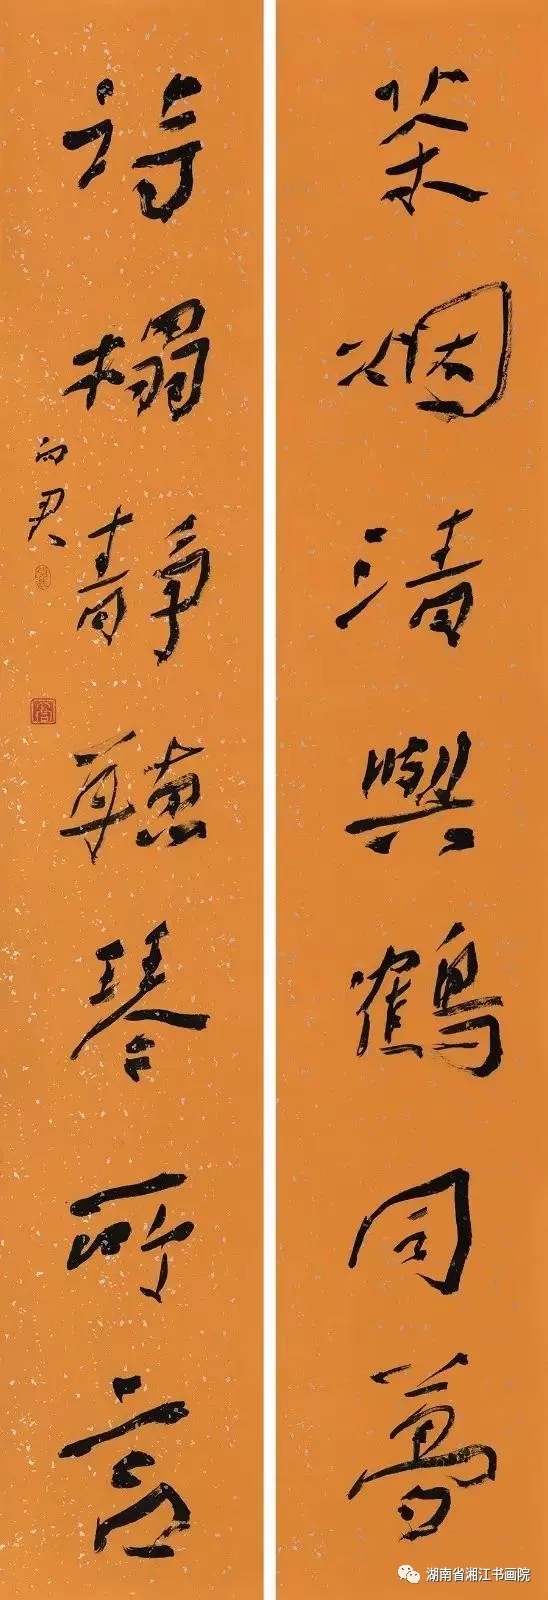 茶烟清與鶴同夢
詩榻靜聽琴所言
湖南省湘江书画院